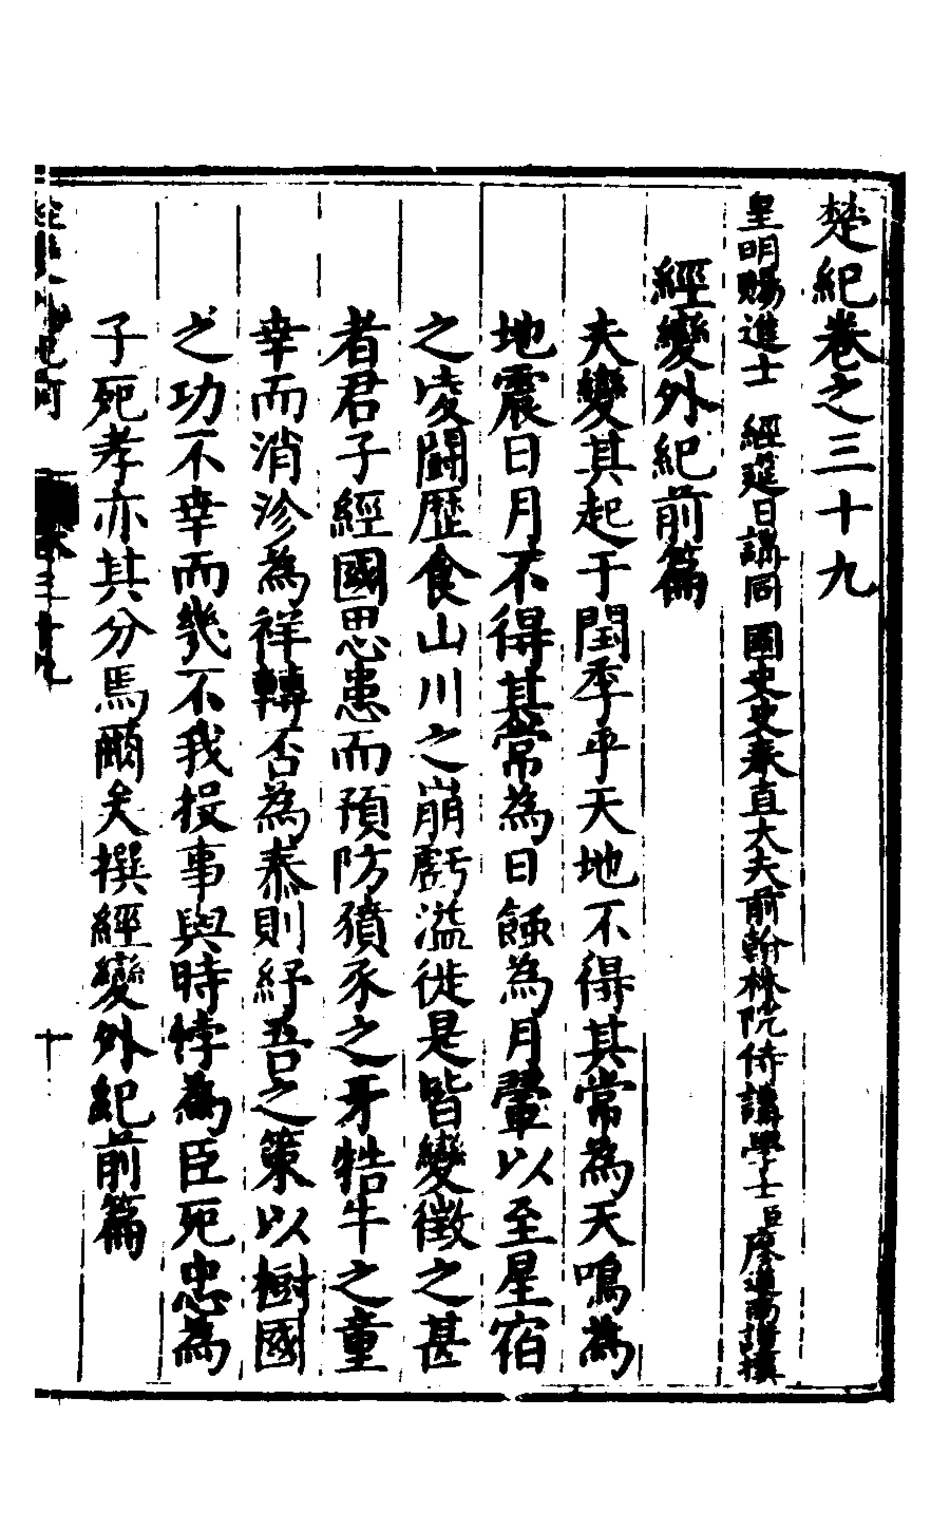 楚紀卷之三十九
皇明賜進士 經筵日講同 國史史奉直大夫前翰林院侍講學士臣廖道南謹撰
經變外紀前篇
夫變其起于閏季乎天地不得其常為天鳴為
地震日月不得其常為日餙為月暈以至星宿
之凌鬪歷食山川之崩虧溢徙是皆變徵之甚
者君子經國思患而預防豶豕之牙牿牛之童
幸而消沴為祥轉否為泰則紓吾之策以樹國
之功不幸而幾不我投事與時悖為臣死忠為
子死孝亦其分焉爾矣撰經變外紀前篇